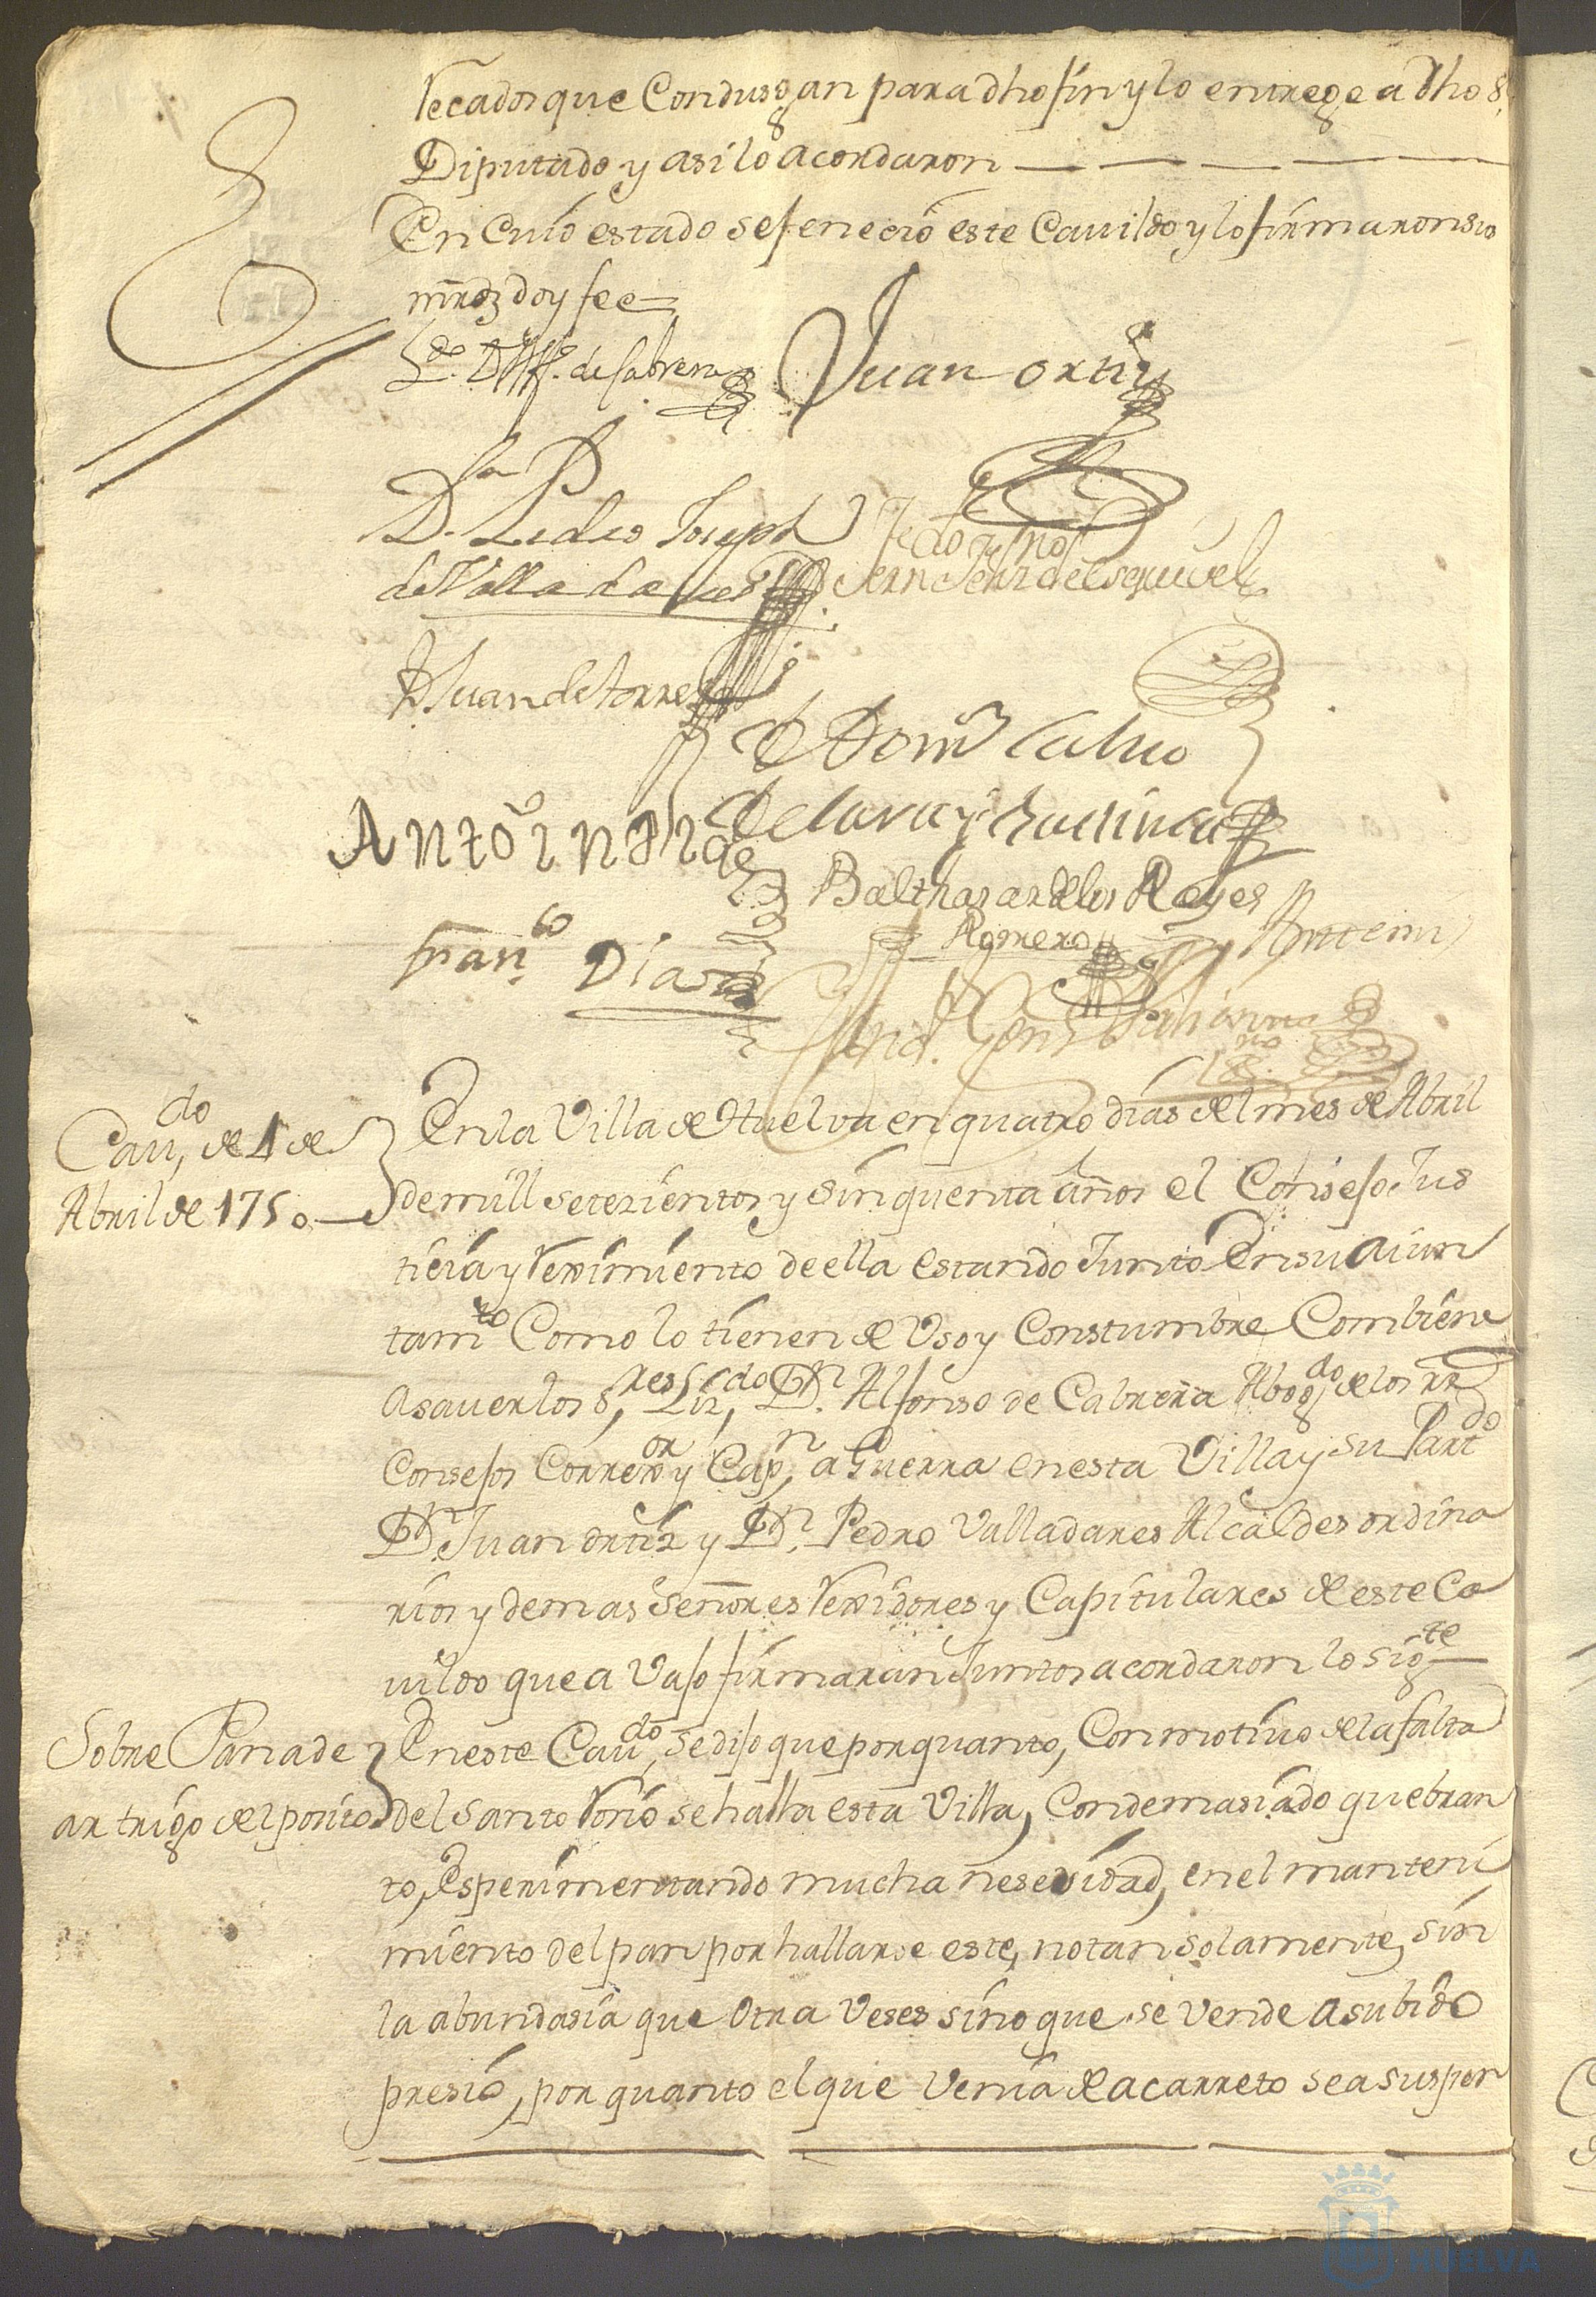 recados que Condusgan para dho fin y lo entrege a dho S.
Diputado y asi lo acordaron
En Cuio estado se feneció este Cavildo y lo firmaron sus
mrds doy fee
Ldo. Dn Alfo. de Cabrera
Juan ortiz
Dn. Pedro Joseph
de Valladares
D Juan de torres
D Domo Calvo
de lara y
Antonio
Balthasar de los Reyes
Romero
Ante mi
Franco Dias
Cavdo, de 4 de
Abril de 1750
En la Villa de Huelva en quatro dias del mes de Abril
de mill setezientos y sinquenta años el Consejo Jus
ticia y reximiento de ella estando Junto En su aiun
tamto Como lo tienen de Uso y Constumbre Combiene
a saver los Sres, Lizdo, Dn. Alfonso de Cabrera Abogdo de los RR
Consejos Correxor y Capn, a Guerra en esta Villa y su Partdo
Dn. Juan ortiz y Dn. Pedro Valladares Alcaldes ordina
rios y demas Señores rexidores y Capitulares de este Ca
vildo que a Vajo firmaran Juntos acordaron lo sigte
Sobre Panade
ar trigo del posito
En este Cavdo, se dijo que por quanto, Con motivo de la falta
del santo rosio se halla esta Villa, Con demasiado quebran
to, Esperimentando mucha nesesidad, en el manteni
miento del pan por hallarse este, no tan solamente, sin
la abundasia que Otra Veses sino que se Vende a subido
presio, por quanto el que Venia de acarreto se a suspen
HUELVA